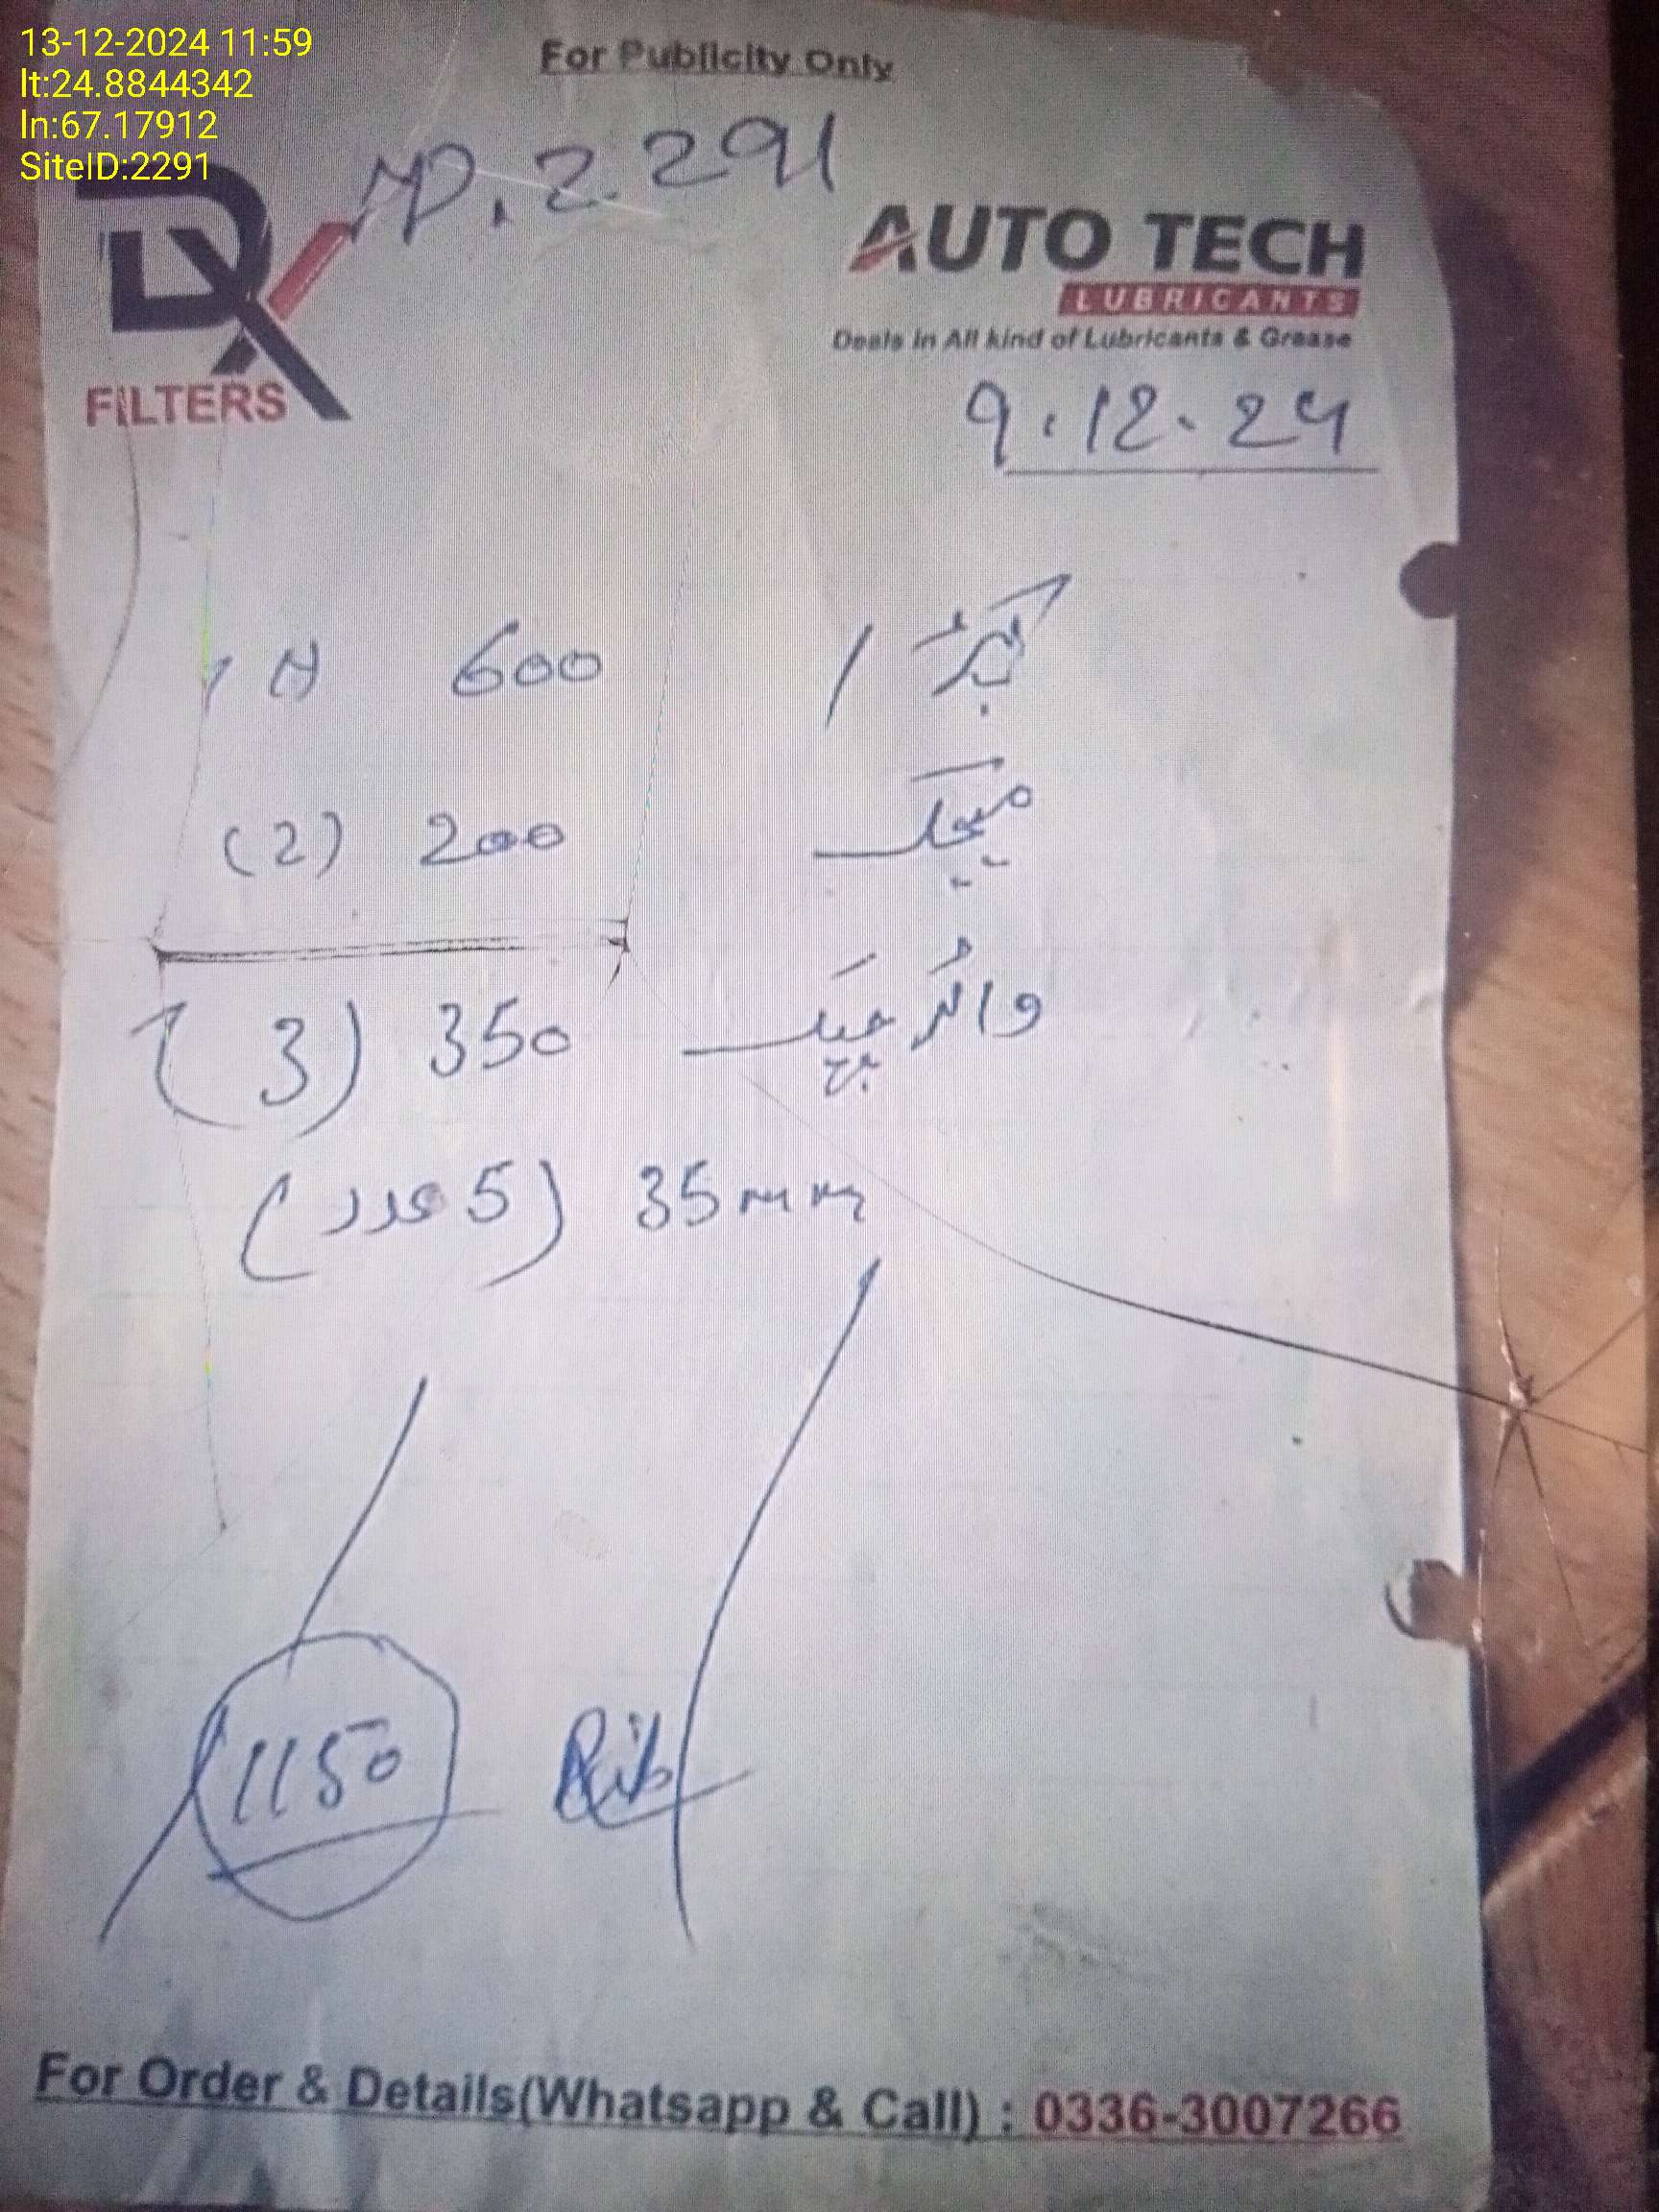 13-12-2024 11:59
lt:24.8844342
ln:67.17912
SiteID:2291
For Publicity Only
MP. 2291
DX
FILTERS
AUTO TECH
LUBRICANTS
Deals in All kind of Lubricants & Grease
9.12.24
600
(2) 200
(3) 350 واٹر چیک
(5 عدد) 35mm
1150
For Order & Details(Whatsapp & Call) : 0336-3007266